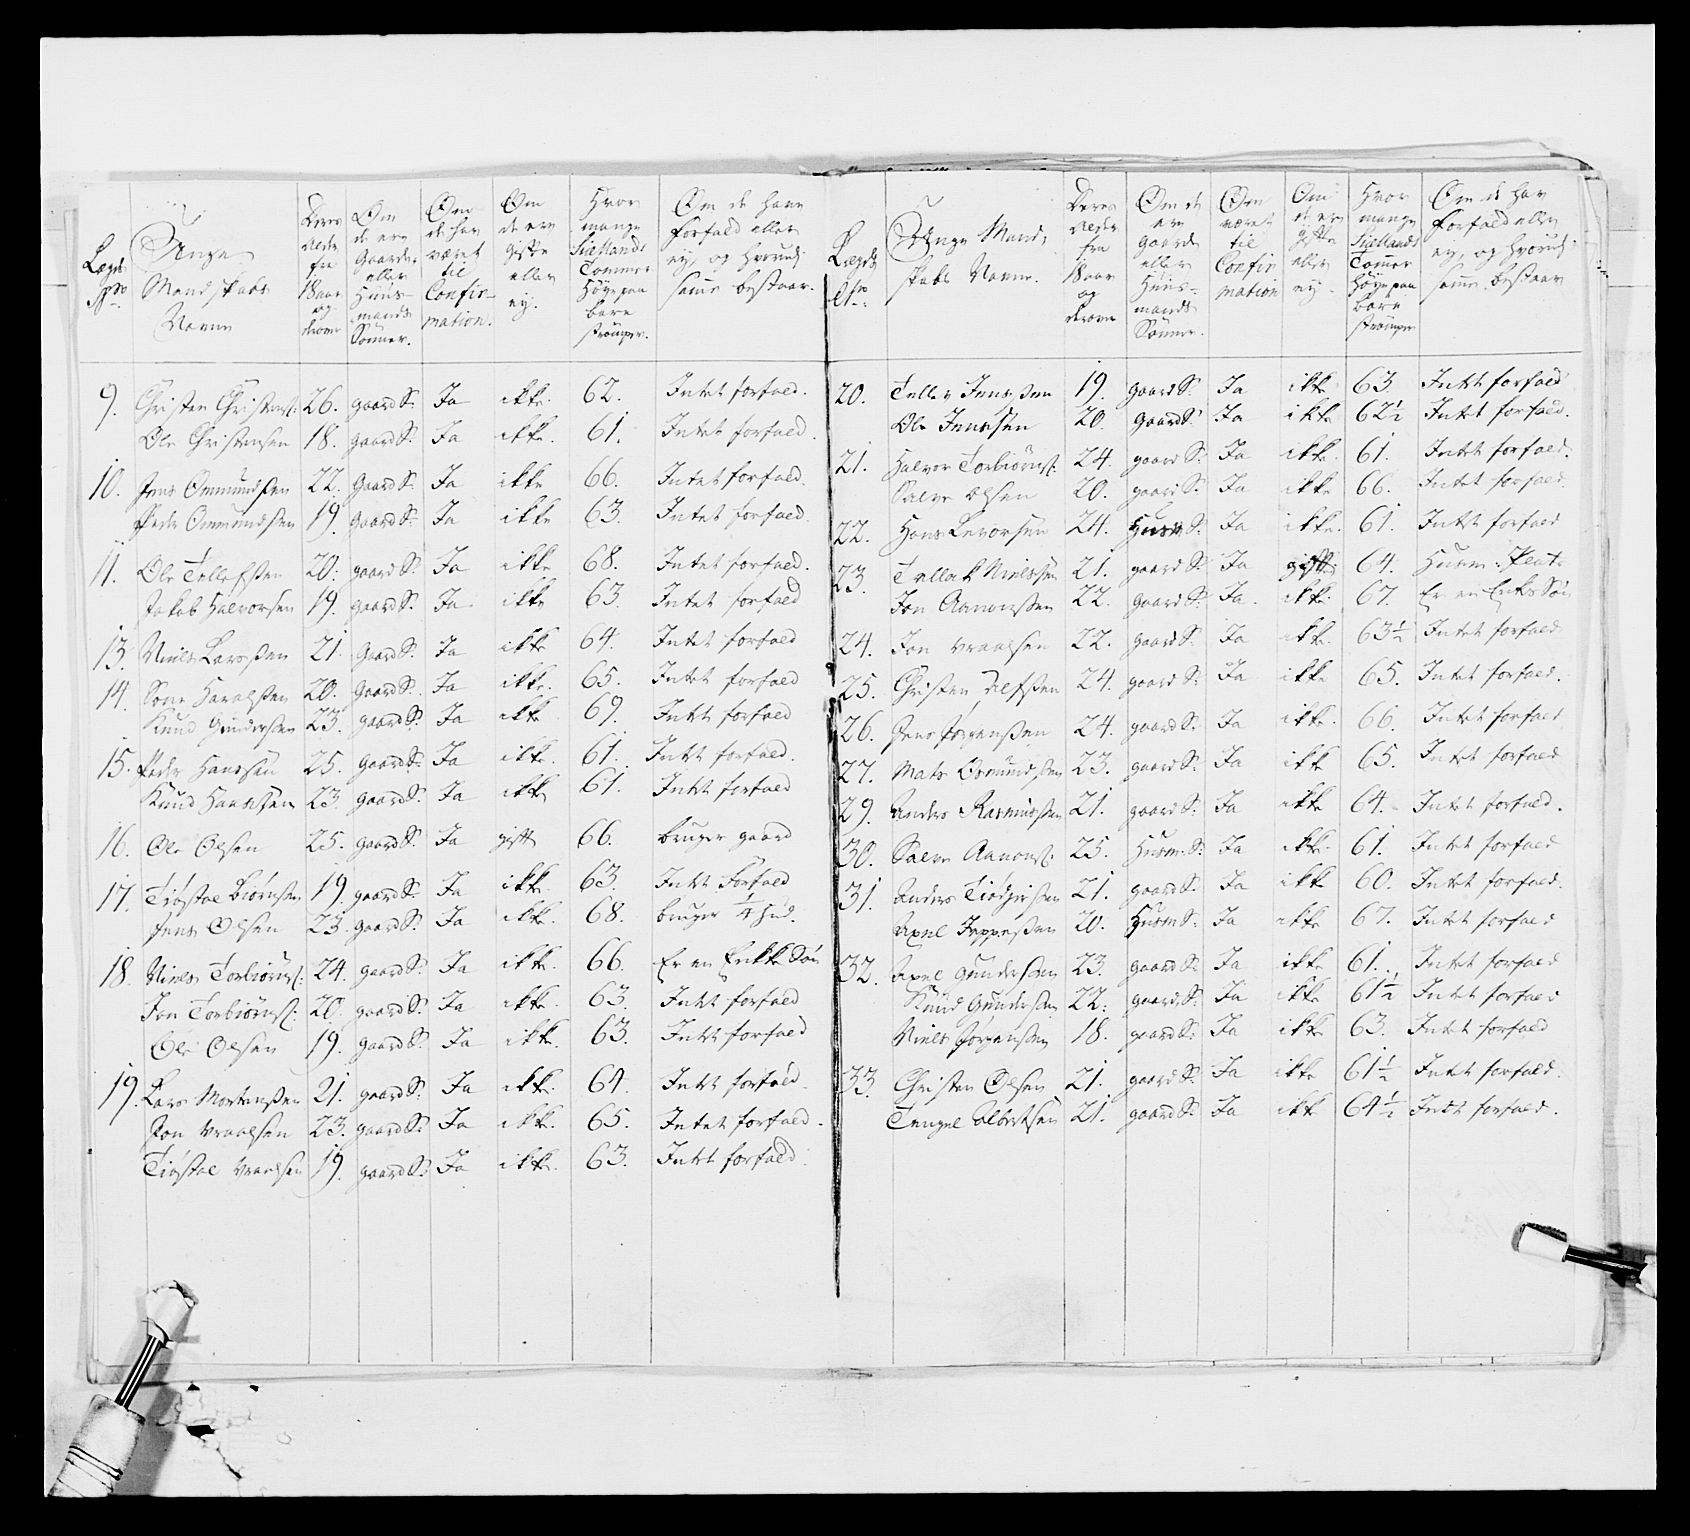 Lægds No
Unge Mandskabs Navne
Deres Alder fra 18 aar og derover
Om de ere Gaards- eller Huus-mands Sønner.
Om de har været til Confirmation.
Om de ere gifte eller ey.
Hvor mange Siellands Tommer Høye paa bare strømper.
Om de have forfald eller ey, og hvorudi samme bestaar.
9. Christen Christens: 26. gaard S: Ja ikke. 62. Intet forfald.
Ole Christensen 18. gaard S: Ja ikke. 61. Intet forfald.
10. Jens Ommundsen 22. Gaard S: Ja ikke 66. Intet forfald.
Peder Ommundsen 19. Gaard S: Ja ikke 63. Intet forfald.
11. Ole Tellefssen 20. gaard S: Ja ikke 68. Intet forfald.
Jakob Halvorsen 19. gaard S: Ja ikke 63 Intet forfald
13. Niels Larssen 21. Gaard S: Ja ikke 64. Intet forfald
14. Sone Haralssen 20. Gaard S: Ja ikke. 65. Intet forfald
Knud Gundersen 23. gaard S: Ja ikke 69. Intet forfald
15. Peder Hanssen 25. Gaard S: Ja ikke. 61. Intet forfald.
Knud Hanssen 23. gaard S: Ja ikke 61. Intet forfald
16. Ole Olsen 25. gaard S: Ja gift 66. bruger gaard
17. Tiøstol Biørnsen 19. gaard S: Ja ikke. 63. Intet Forfald
Jens Olsen 23. gaard S: Ja ikke. 68. bruger 1/4 Hud.
18. Niels Torbiørns: 24. gaard S: Ja ikke. 66. Er en Enkke Søn
Jon Torbiørns: 20. gaard S: Ja ikke. 63. Intet forfald
Ole Olsen 19. gaard S: Ja ikke. 63. Intet forfald
19. Lars Mortenssen 21. gaard S: Ja ikke. 64. Intet forfald.
Jon Vraalsen 23. gaard S: Ja ikke. 65. Intet forfald.
Tiøstol Vraalsen 19. gaard S: Ja ikke. 63. Intet forfald.
Lægds No
Unge Mandskabs Navne.
Deres Alder fra 18 aar og derover
Om de ere Gaards eller Huus-mands Sønner.
Om været til Confirmation
Om de ere gifte eller ey.
Hvor mange Siellands Tommer Høye paa bare strømper
Om de har Forfald eller ey, og hvorudi samme bestaar
20. Tellev Jenssen 19. gaard S: Ja ikke 63 Intet forfald
Ole Jenssen 20. Gaard S: Ja ikke 62 1/2 Intet forfald.
21. Halvor Torbiørns: 24. gaard S: Ja ikke. 61. Intet forfald.
Salve Olsen 20. gaard S: Ja ikke 66. Intet forfald.
22. Hans Levorsen 24. Husm S: Ja ikke. 61. Intet forfald
23. Tellak Nielssen 21. gaard S: Ja gift 64. Husm: Plads
Jon Aanonssen 22. Gaard S: Ja. ikke. 67. Er en Enkes Søn
24. Jon Vraalsen 22. Gaard S: Ja ikke. 63 1/2 Intet forfald
25. Christen 24. gaard S: Ja ikke 65. Intet forfald.
26. Jens Jørgenssen 24. gaard S: Ja ikke. 66. Intet forfald
27. Mats Osmundsen 23. gaard S: Ja ikke 65. Intet forfald
29. Anders Rasmussen 21. gaard S: Ja ikke 64. Intet forfald.
30. Salve Aanons: 25. Husm: S: Ja ikke. 61. Intet forfald
31. Anders 21. gaard S: Ja ikke 60. Intet forfald.
Axel Jeppessen 20. Husm S: Ja ikke 67. Intet forfald
32. Axel Gundersen 23. gaard S: Ja ikke 61. Intet forfald
Knud Gundersen 22. gaard S: Ja ikke 61 1/2 Intet forfald
Niels Jørgensen 18. gaard S: Ja ikke 63. Intet forfald
33. Christen Olsen 21. gaard S: Ja ikke 61 1/2 Intet forfald.
Tengel Albretsen 21. gaard S: Ja ikke 64 1/2 Intet forfald.